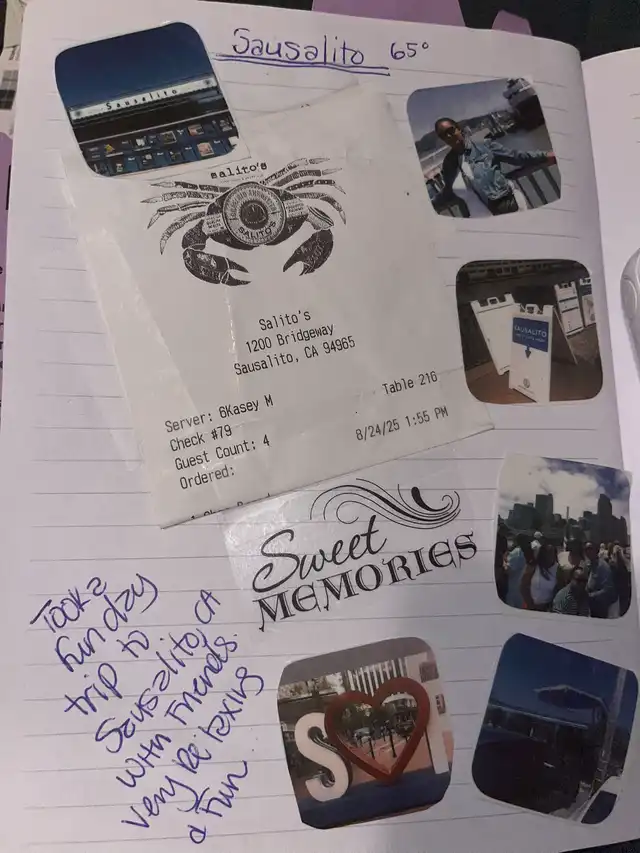 Sausalito 65°
Sausalito
salito's
SALITO'S
Salito's
1200 Bridgeway
Sausalito, CA 94965
Server: 6Kasey M
Table 216
Check #79
8/24/25 1:55 PM
Guest Count: 4
Ordered:
SAUSALITO
Sweet
MEMORIES
Took a
fun day
trip to
Sausalito, CA
with Friends.
very Relaxing
& Fun.
S